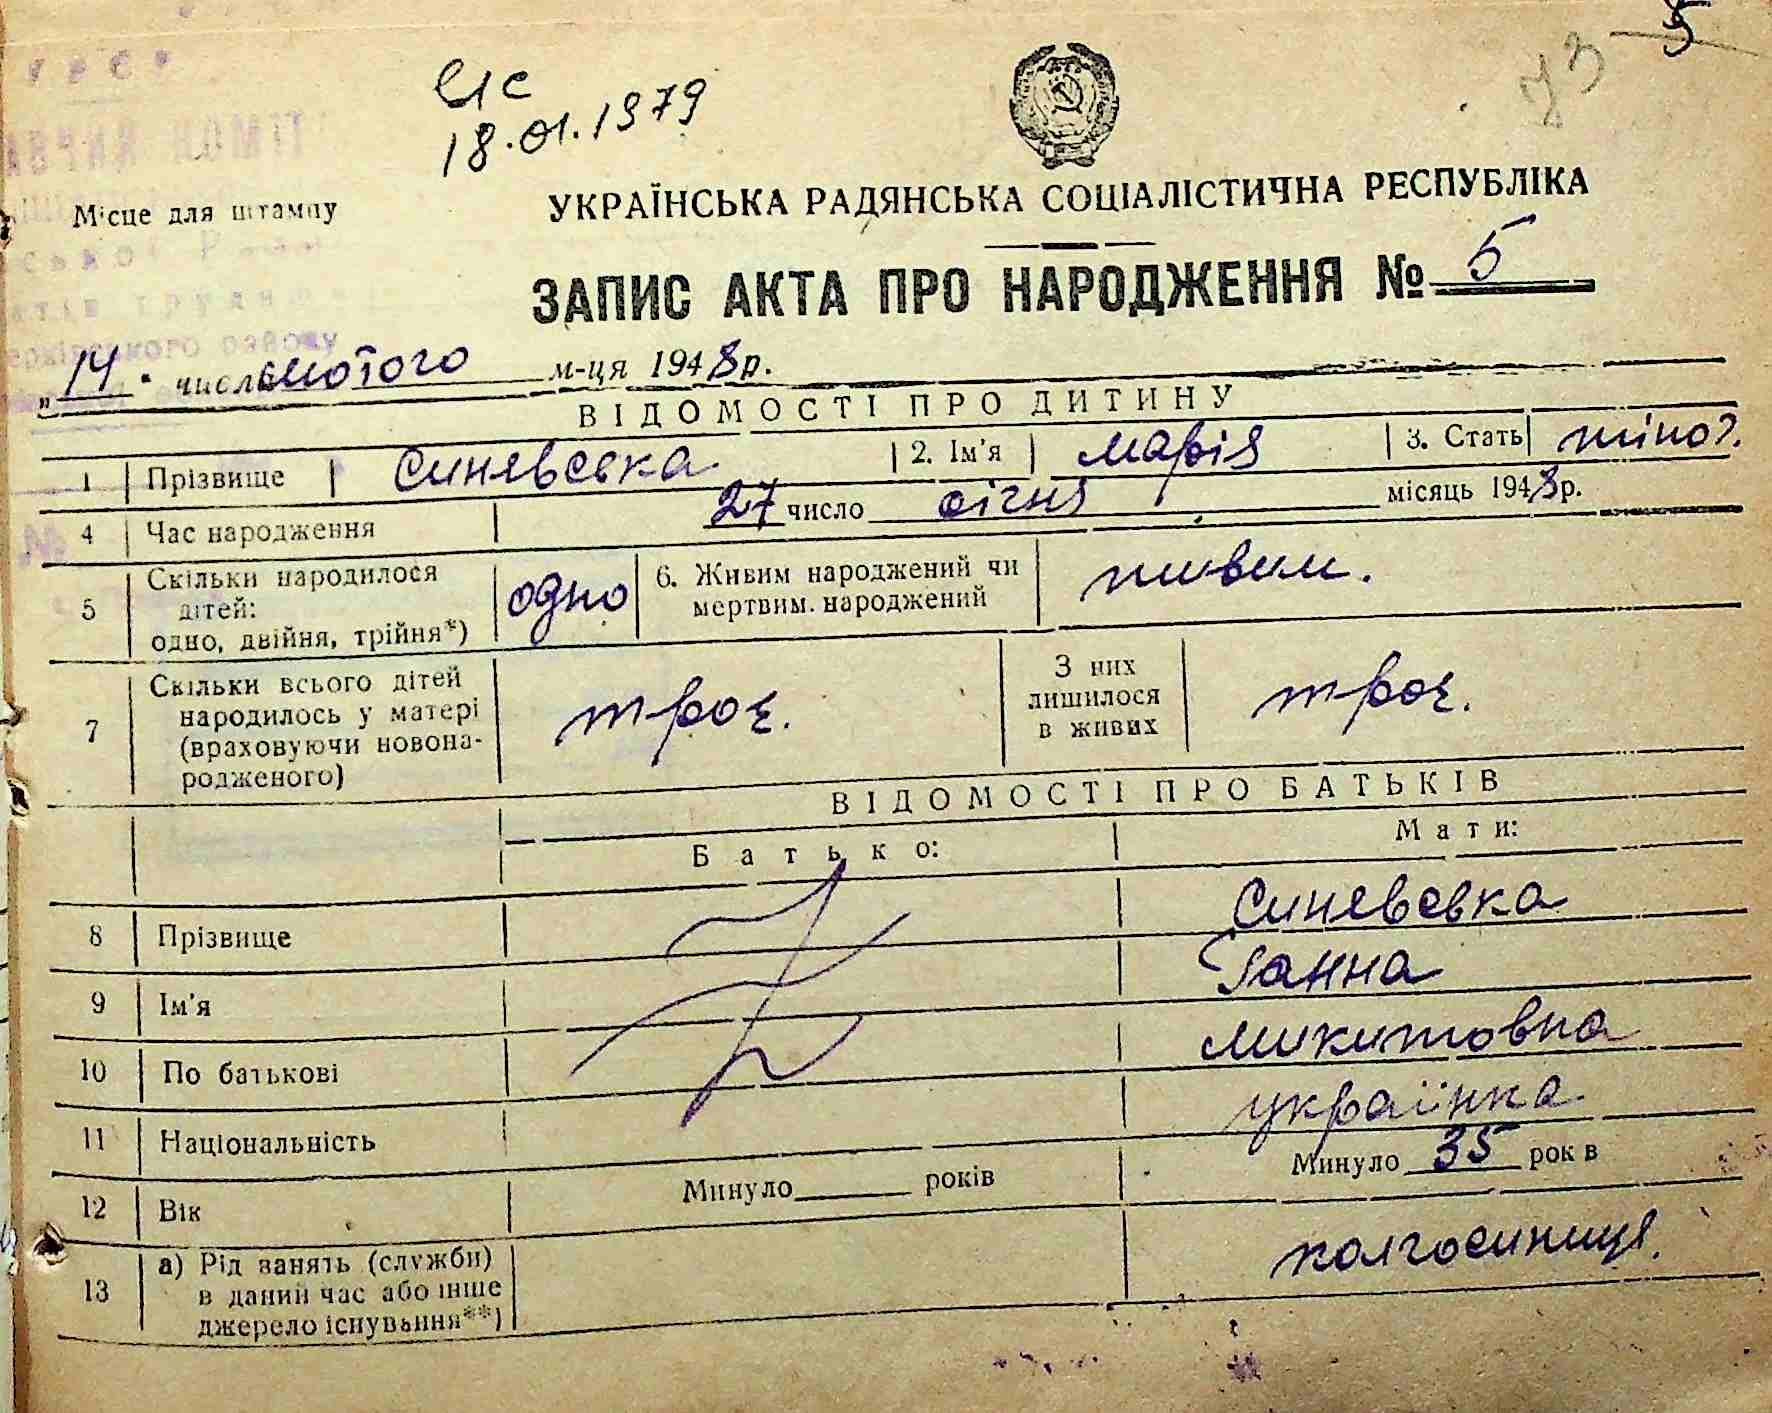 5
73
18.01.1979
Місце для штампу
УКРАЇНСЬКА РАДЯНСЬКА СОЦІАЛІСТИЧНА РЕСПУБЛІКА
ЗАПИС АКТА ПРО НАРОДЖЕННЯ № 5
„14" число лютого м-ця 1948 р.
ВІДОМОСТІ ПРО ДИТИНУ
1 Прізвище Синявська 2. Ім'я Марія 3. Стать жіноч.
4 Час народження 27 число січня місяць 1948 р.
5 Скільки народилося дітей: одно, двійня, трійня*) одно 6. Живим народжений чи мертвим народжений живим.
7 Скільки всього дітей народилось у матері (враховуючи новонародженого) троє. З них лишилося в живих троє.
ВІДОМОСТІ ПРО БАТЬКІВ
Батько: Мати:
8 Прізвище Синявська
9 Ім'я Ганна
10 По батькові Микитовна
11 Національність українка
12 Вік Минуло років Минуло 35 років
13 а) Рід занять (служби) в даний час або інше джерело існування**) колгоспниця.